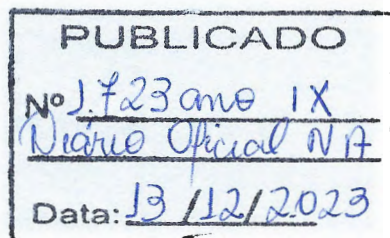 PUBLICADO
Nº 1.723 ano IX
Diário Oficial NA
Data: 13/12/2023